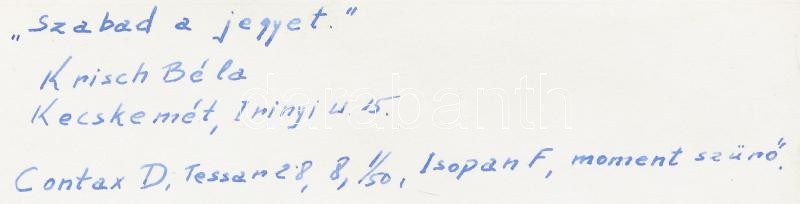 „Szabad a jegyet."
Krisch Béla
Kecskemét, Irinyi u. 15.
darabanth
Contax D, Tessar 2'8, 8, 1/50, Isopan F, moment szűrő".